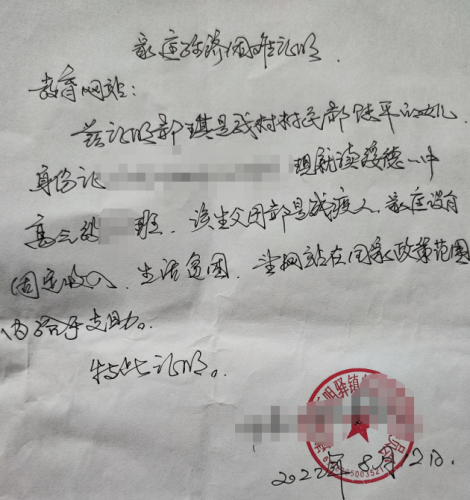 家庭经济困难证明
教育网站:
兹证明郭琪是我村村民郭陆平的女儿,
身份证 现就读绥德一中
高三级 班。该生父母都是残疾人,家庭没有
固定收入,生活贫困,望网站在国家政策范围
内给予支助。
特此证明。
驿镇
2022年8月12日.